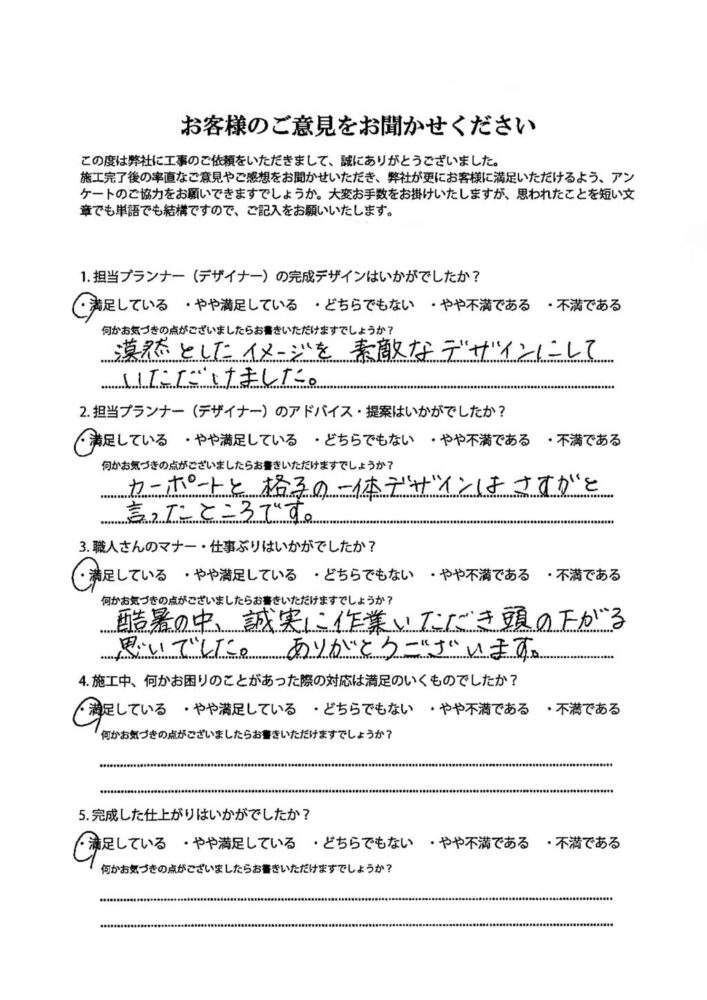 お客様のご意見をお聞かせください
この度は弊社に工事のご依頼をいただきまして、誠にありがとうございました。
施工完了後の率直なご意見やご感想をお聞かせいただき、弊社が更にお客様に満足いただけるよう、アン
ケートのご協力をお願いできますでしょうか。大変お手数をお掛けいたしますが、思われたことを短い文
章でも単語でも結構ですので、ご記入をお願いいたします。
1. 担当プランナー（デザイナー）の完成デザインはいかがでしたか？
・満足している ・やや満足している ・どちらでもない ・やや不満である ・不満である
何かお気づきの点がございましたらお書きいただけますでしょうか？
漠然としたイメージを 素敵なデザインにして
いただけました。
2. 担当プランナー（デザイナー）のアドバイス・提案はいかがでしたか？
・満足している ・やや満足している ・どちらでもない ・やや不満である ・不満である
何かお気づきの点がございましたらお書きいただけますでしょうか？
カーポートと 格子の一体デザインは さすがと
言ったところです。
3. 職人さんのマナー・仕事ぶりはいかがでしたか？
・満足している ・やや満足している ・どちらでもない ・やや不満である ・不満である
何かお気づきの点がございましたらお書きいただけますでしょうか？
酷暑の中、誠実に作業いただき頭の下がる
思いでした。 ありがとうございます。
4. 施工中、何かお困りのことがあった際の対応は満足のいくものでしたか？
・満足している ・やや満足している ・どちらでもない ・やや不満である ・不満である
何かお気づきの点がございましたらお書きいただけますでしょうか？
5. 完成した仕上がりはいかがでしたか？
・満足している ・やや満足している ・どちらでもない ・やや不満である ・不満である
何かお気づきの点がございましたらお書きいただけますでしょうか？